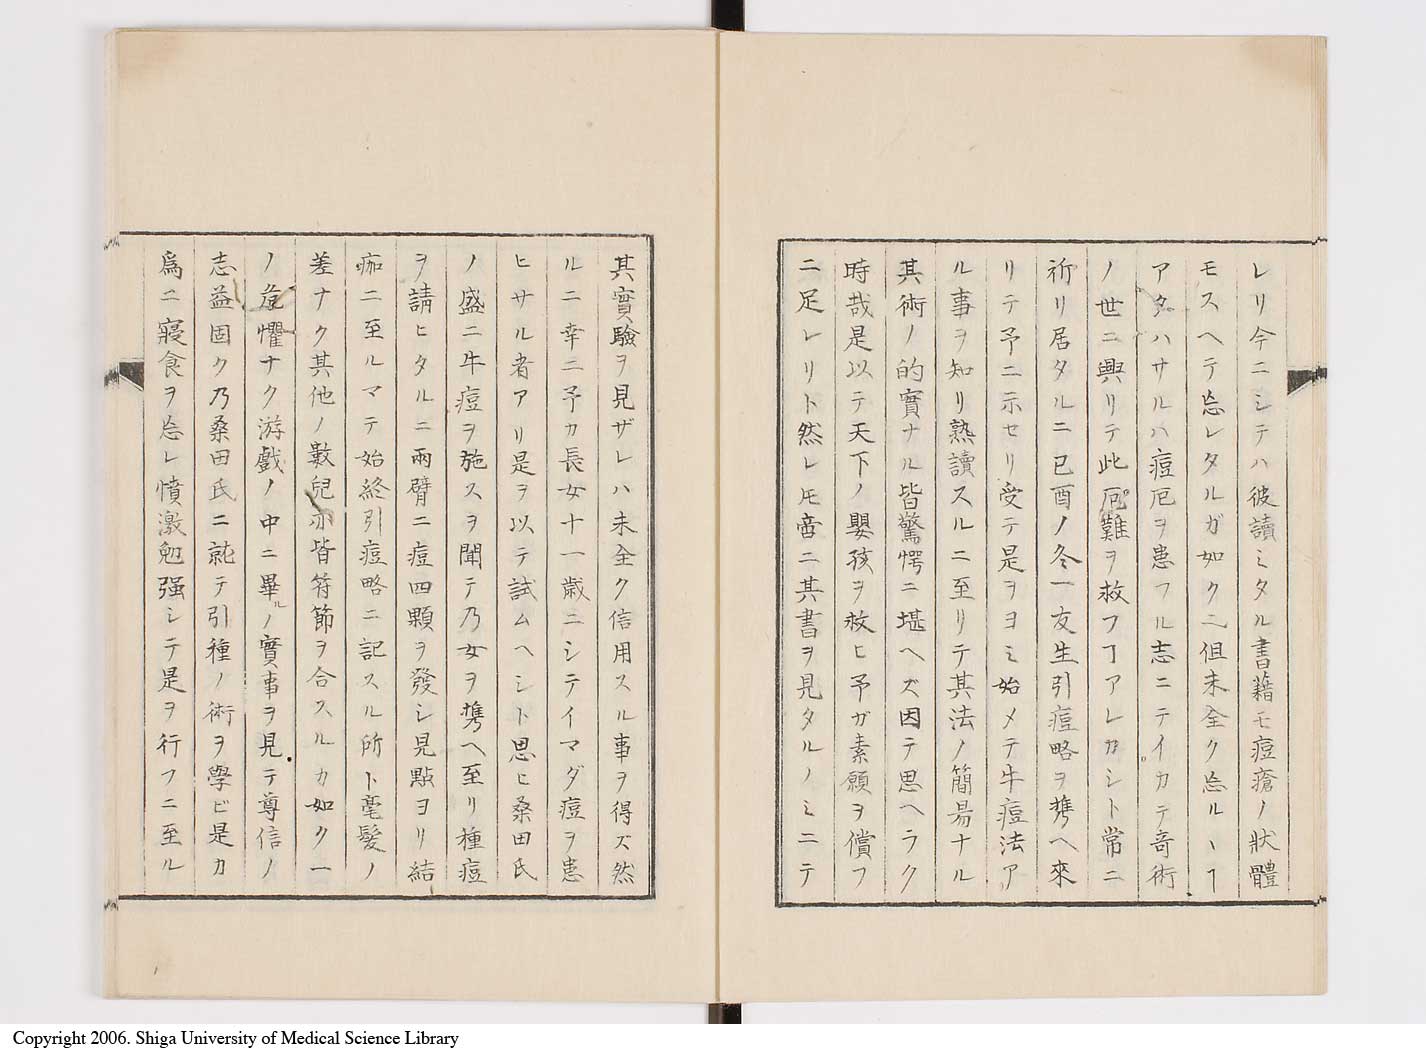 レリ今ニシテハ彼讀ミタル書藉モ痘瘡ノ狀體
モスヘテ忘レタルガ如クニ但未全ク忘ルヽヿ
アタハサルハ痘厄ヲ患フル志ニテイカテ奇術
ノ世ニ興リテ此厄難ヲ救フヿアレカシト常ニ
祈リ居タルニ已酉ノ冬一友生引痘略ヲ携ヘ來
リテ予ニ示セリ受テ是ヲヨミ始メテ牛痘法ア
ル事ヲ知リ熟讀スルニ至リテ其法ノ簡易ナル
其術ノ的實ナル皆驚愕ニ堪ヘズ因テ思ヘラク
時哉是以テ天下ノ嬰孩ヲ救ヒ予ガ素願ヲ償フ
ニ足レリト然レ𪜈啻ニ其書ヲ見タルノミニテ
其實驗ヲ見ザレハ未全ク信用スル事ヲ得ズ然
ルニ幸ニ予カ長女十一歳ニシテイマダ痘ヲ患
ヒサル者アリ是ヲ以テ試ムヘシト思ヒ桑田氏
ノ盛ニ牛痘ヲ施スヲ聞テ乃女ヲ携ヘ至リ種痘
ヲ請ヒタルニ兩臂ニ痘四顆ヲ發シ見點ヨリ結
痂ニ至ルマテ始終引痘略ニ記スル所ト毫髮ノ
差ナク其他ノ數兒亦皆符節ヲ合スルカ如ク一
ノ危懼ナク游戲ノ中ニ畢ルノ實事ヲ見テ尊信ノ
志益固ク乃桑田氏ニ就テ引種ノ術ヲ學ビ是カ
爲ニ寢食ヲ忘レ憤激勉强シテ是ヲ行フニ至ル
Copyright 2006. Shiga University of Medical Science Library